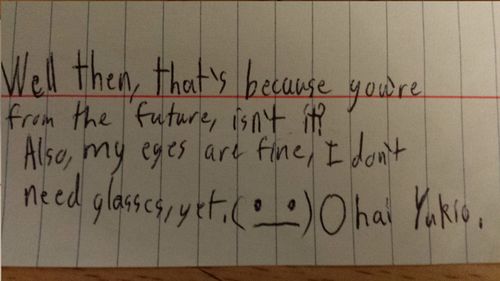 Well then, that's because you're
from the future, isn't it?
Also, my eyes are fine, I don't
need glasses, yet. (•_•) O hai Yukio.